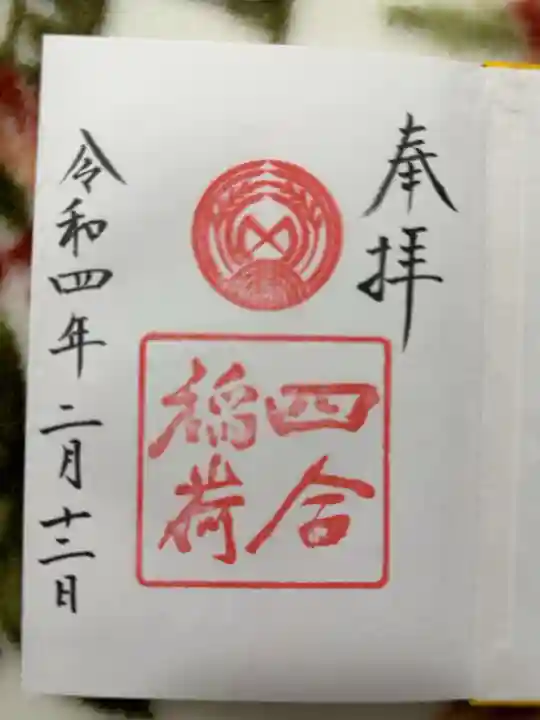 奉拝
四合
稲荷
令和四年二月十三日